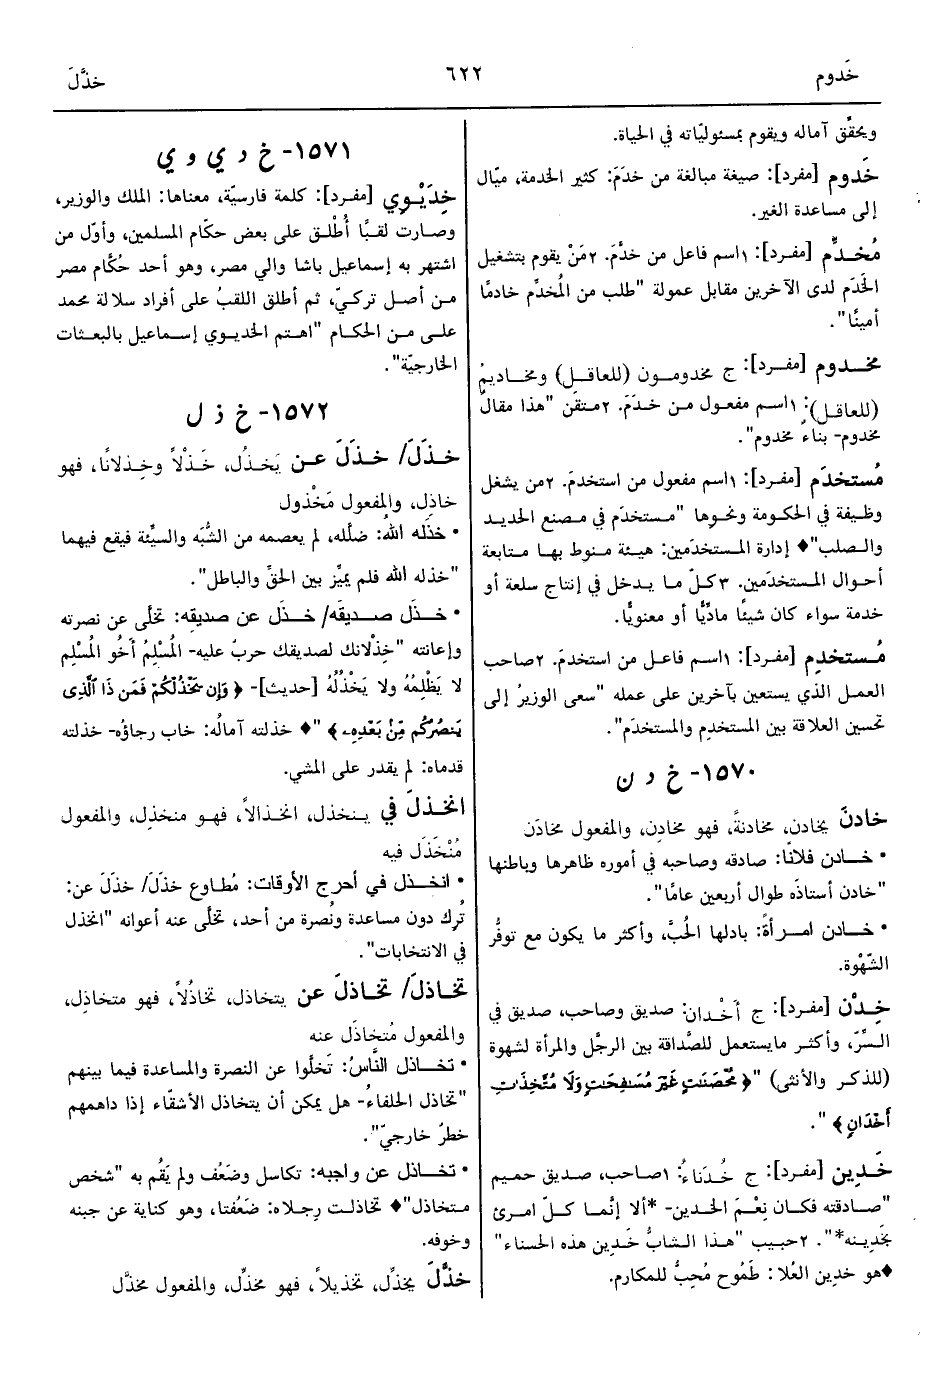 خَدوم
٦٢٢
خذَّلَ
ويحقِّق آماله ويقوم بمسئوليّاته في الحياة.
خَدوم [مفرد]: صيغة مبالغة من خدَمَ: كثير الخدمة، ميّال
إلى مساعدة الغير.
مُخدِّم [مفرد]: ١اسم فاعل من خدَّمَ. ٢مَنْ يقوم بتشغيل
الخدَم لدى الآخرين مقابل عمولة "طلب من المُخدِّم خادمًا
أمينًا".
مخدوم [مفرد]: ج مخدومون (للعاقل) ومخاديمُ
(للعاقل): ١اسم مفعول من خدَمَ. ٢متقن "هذا مقال
مخدوم- بناء مخدوم".
مُستخدَم [مفرد]: ١اسم مفعول من استخدمَ. ٢من يشغل
وظيفة في الحكومة ونحوها "مستخدَم في مصنع الحديد
والصلب"♦ إدارة المستخدَمين: هيئة منوط بها متابعة
أحوال المستخدَمين. ٣كلّ ما يدخل في إنتاج سلعة أو
خدمة سواء كان شيئًا ماديًّا أو معنويًّا.
مُستخدِم [مفرد]: ١اسم فاعل من استخدمَ. ٢صاحب
العمل الذي يستعين بآخرين على عمله "سعى الوزيرُ إلى
تحسين العلاقة بين المستخدِم والمستخدَم".
١٥٧٠- خ د ن
خادنَ يخادن، مخادنةً، فهو مخادِن، والمفعول مخادَن
• خادن فلانًا: صادقه وصاحبه في أموره ظاهرها وباطنها
"خادن أستاذَه طوال أربعين عامًا".
• خادن امرأةً: بادلها الحُبَّ، وأكثر ما يكون مع توفُّر
الشَّهْوة.
خِدْن [مفرد]: ج أخْدان: صديق وصاحب، صديق في
السِّرّ، وأكثر مايستعمل للصَّداقة بين الرجُل والمرأة لشهوة
(للذكر والأنثى) "﴿ مُحْصَنَٰتٍ غَيْرَ مُسَٰفِحَٰتٍ وَلَا مُتَّخِذَٰتِ
أَخْدَانٍ ﴾ ".
خَدين [مفرد]: ج خُدَناءُ: ١صاحب، صديق حميم
"صادقته فكان نِعْمَ الخدين- *ألا إنَّما كلّ امرئ
بخدِينه*". ٢حبيب "هذا الشابُّ خَدِين هذه الحسناء"
♦هو خدين العُلا: طَمُوح مُحِبٌّ للمكارم.
١٥٧١- خ د ي و ي
خِدَيْوِي [مفرد]: كلمة فارسيّة، معناها: الملك والوزير،
وصارت لقبًا أُطْلق على بعض حكّام المسلمين، وأوّل من
اشتهر به إسماعيل باشا والي مصر، وهو أحد حُكَّام مصر
من أصل تركيّ، ثم أطلق اللقبُ على أفراد سلالة محمد
على من الحكام "اهتم الخديوي إسماعيل بالبعثات
الخارجيّة".
١٥٧٢- خ ذ ل
خذَلَ/ خذَلَ عن يَخذُل، خَذْلاً وخِذلانًا، فهو
خاذِل، والمفعول مَخْذول
• خذَله اللهُ: ضلَّله، لم يعصمه من الشُّبَه والسيِّئة فيقع فيهما
"خذله الله فلم يميِّز بين الحقِّ والباطل".
• خذَل صديقَه/ خذَل عن صديقِه: تخلَّى عن نصرته
وإعانته "خِذْلانك لصديقك حربٌ عليه- المُسْلِمُ أَخُو المُسْلِمِ
لا يَظْلِمُهُ ولا يَخْذُلُهُ [حديث]- ﴿ وَإِن يَخْذُلْكُمْ فَمَن ذَا الَّذِى
يَنصُرُكُم مِّنۢ بَعْدِهِۦ ﴾ "♦ خذلته آمالُه: خاب رجاؤُه- خذلته
قدماه: لم يقدر على المشي.
انخذلَ في ينخذل، انخذالاً، فهو منخذِل، والمفعول
مُنْخَذَل فيه
• انخذل في أحرج الأوقات: مُطاوع خذَلَ/ خذَلَ عن:
تُرِك دون مساعدة ونُصرة من أحد، تخلَّى عنه أعوانه "انخذل
في الانتخابات".
تخاذلَ/ تخاذلَ عن يتخاذل، تخاذُلاً، فهو متخاذِل،
والمفعول مُتخاذَل عنه
• تخاذل النَّاسُ: تَخلَّوا عن النصرة والمساعدة فيما بينهم
"تخاذل الحلفاءُ- هل يمكن أن يتخاذل الأشقّاء إذا داهمهم
خطرٌ خارجيّ".
• تخاذل عن واجبه: تكاسل وضَعُف ولم يَقُم به "شخص
متخاذل"♦ تخاذلت رِجلاه: ضَعُفتا، وهو كناية عن جبنه
وخوفه.
خذَّلَ يخذِّل، تخذيلاً، فهو مخذِّل، والمفعول مخذَّل